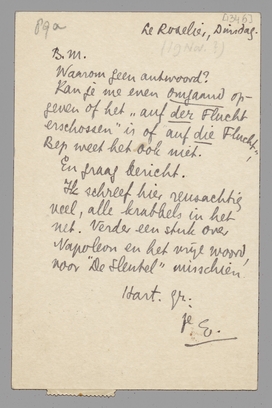 89a
Le Roselier, Dinsdag.
B.M.
Waarom geen antwoord?
Kan je me even omgaand op-
geven of het „auf der Flucht
erschossen" is of auf die Flucht,"
Bep weet het ook niet.
En graag bericht.
Ik schreef hier reusachtig
veel, alle krabbels in het
net. Verder een stuk over
Napoleon en het vrije woord,
voor "De Sleutel" misschien,
Hart. gr.
je E.